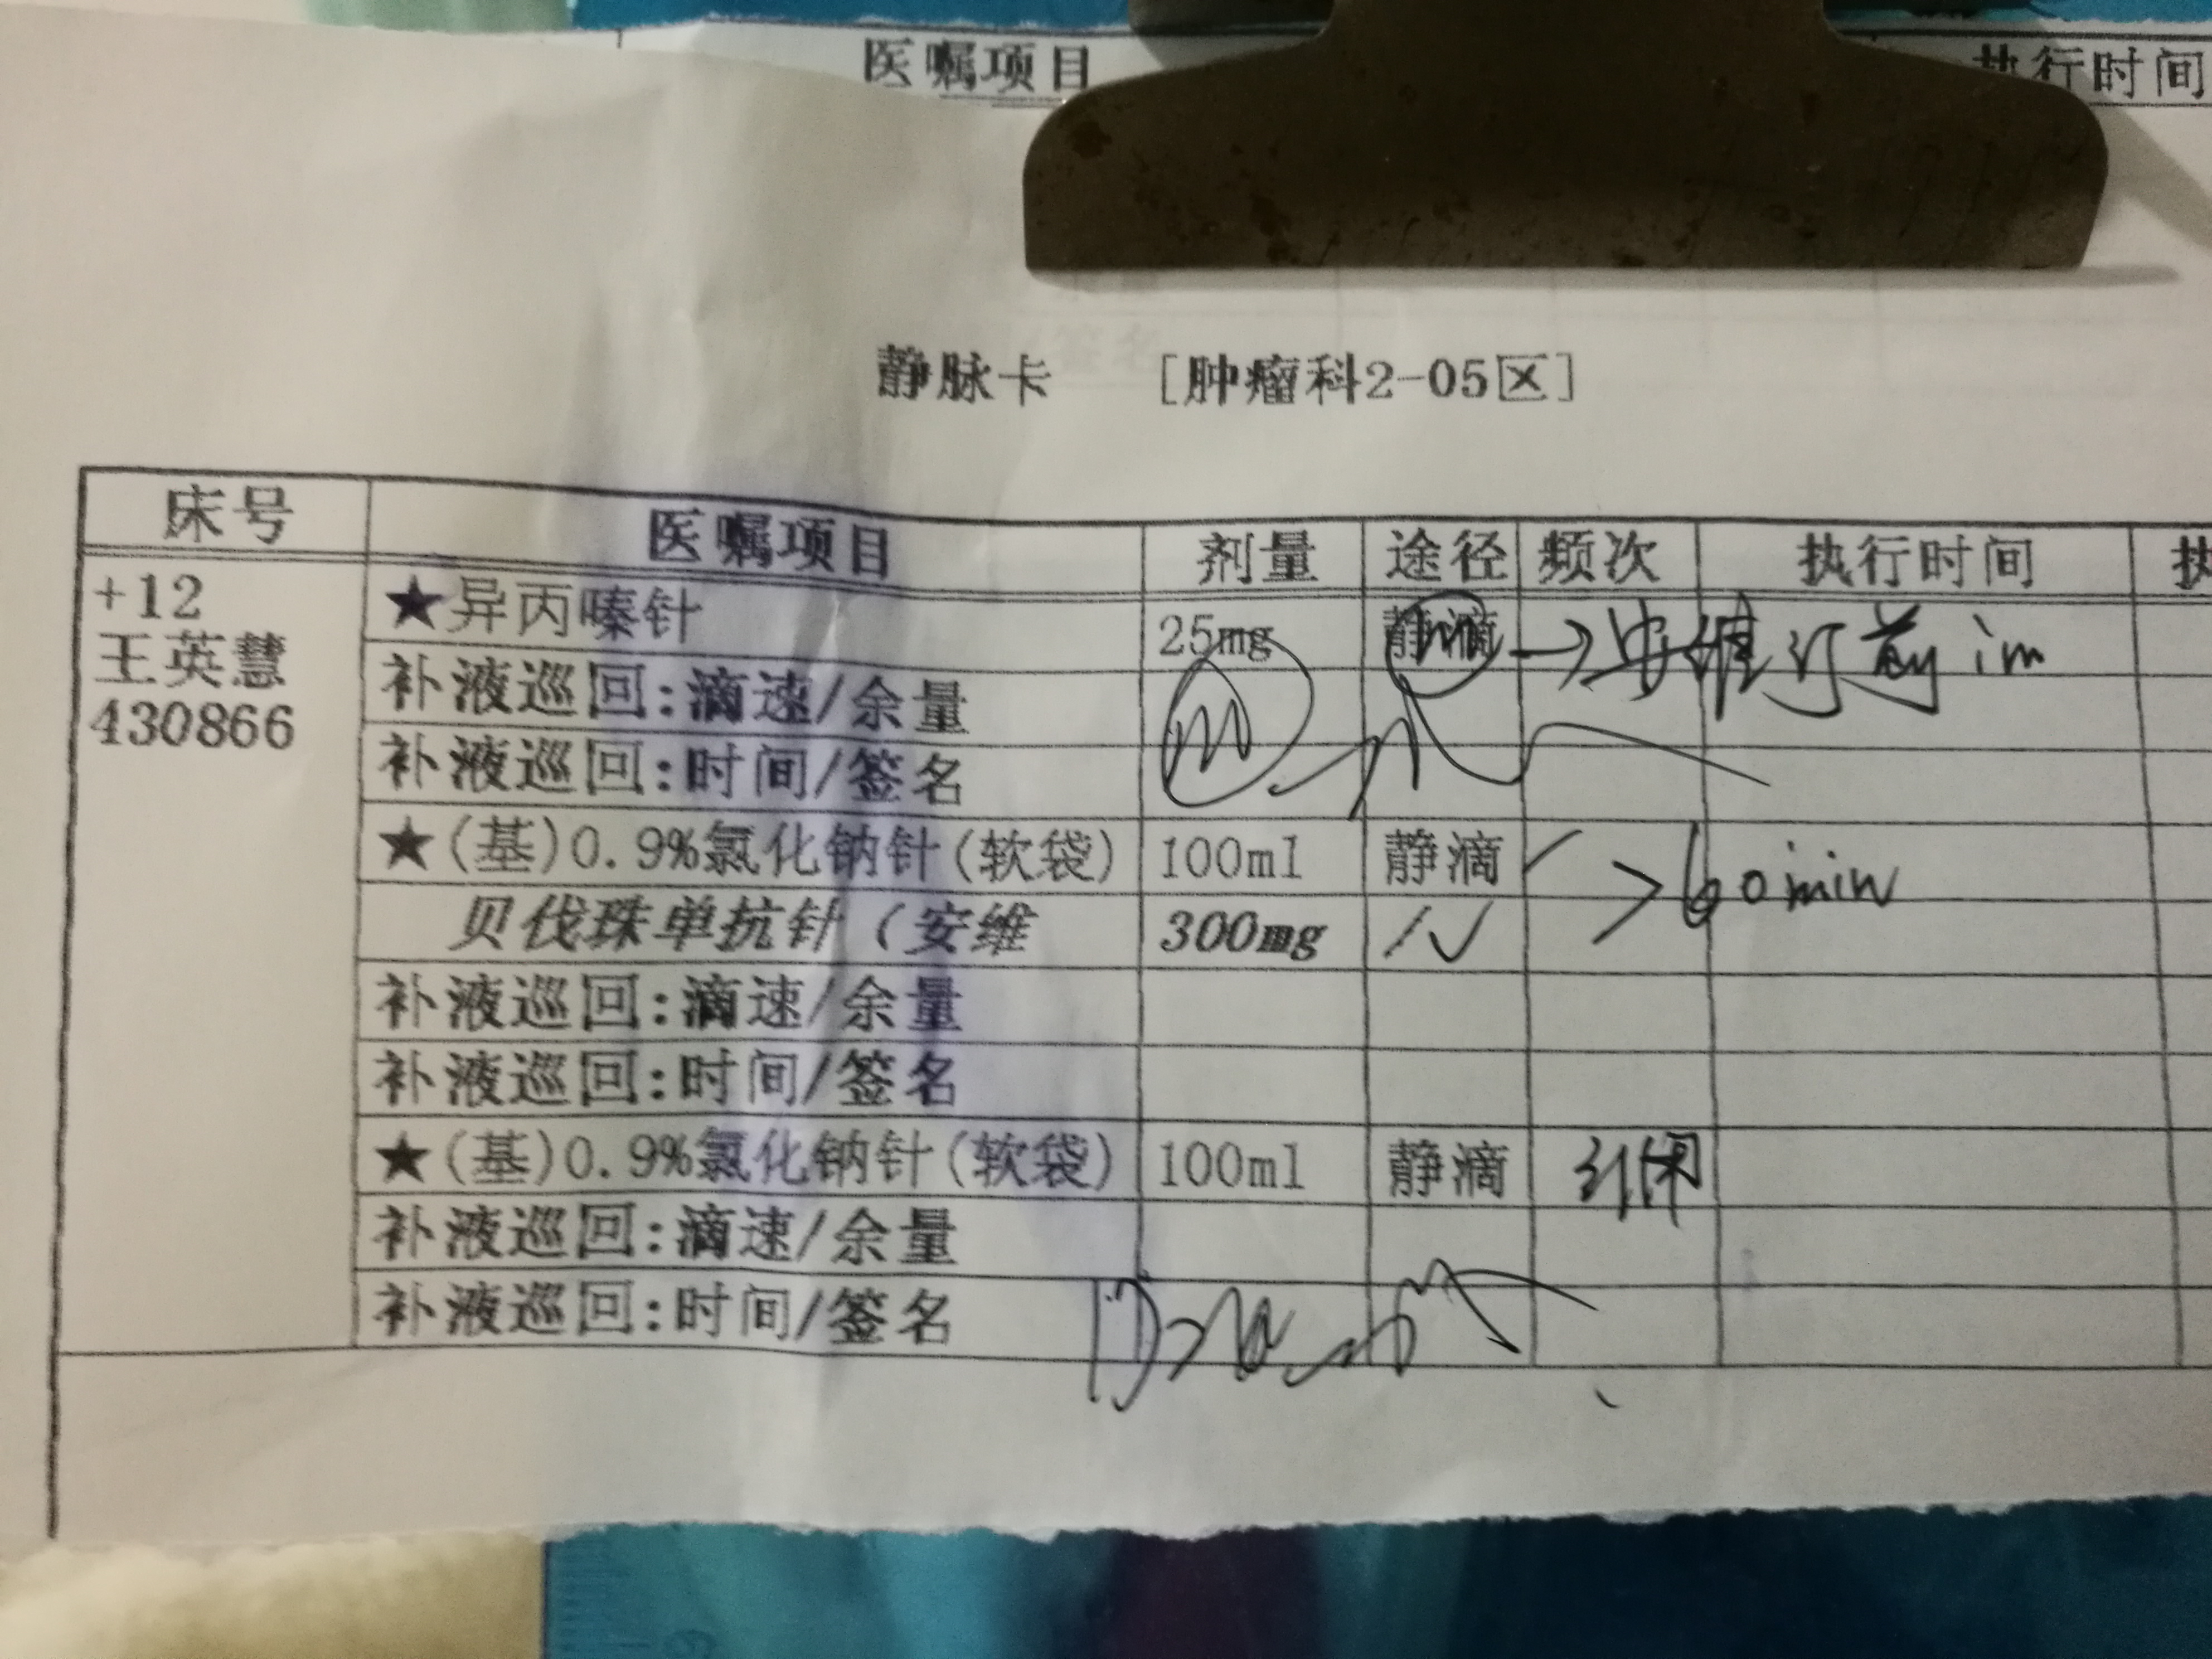 医嘱项目 执行时间
静脉卡 [肿瘤科2-05区]
床号 医嘱项目 剂量 途径 频次 执行时间 执
+12 王英慧 430866
★异丙嗪针 25mg 静滴 → 安维汀前 im
补液巡回:滴速/余量
补液巡回:时间/签名
★(基)0.9%氯化钠针(软袋) 100ml 静滴 >60min
贝伐珠单抗针(安维 300mg
补液巡回:滴速/余量
补液巡回:时间/签名
★(基)0.9%氯化钠针(软袋) 100ml 静滴
补液巡回:滴速/余量
补液巡回:时间/签名